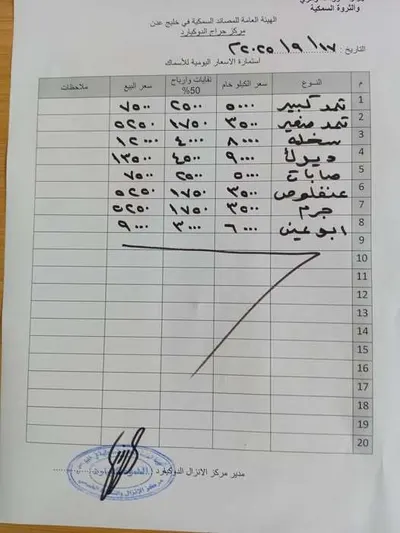 والثروة السمكية
الهيئة العامة للمصائد السمكية في خليج عدن
مركز حراج الدوكيارد
التاريخ : ١٧ / ٩ / ٢٠٢٥
استمارة الاسعار اليومية للأسماك
م النوع سعر الكيلو خام نفايات وارباح 50% سعر البيع ملاحظات
1 ثمد كبير ٥٠٠٠ ٢٥٠٠ ٧٥٠٠
2 ثمد صغير ٣٥٠٠ ١٧٥٠ ٥٢٥٠
3 سخله ٨٠٠٠ ٤٠٠٠ ١٢٠٠٠
4 ديرك ٩٠٠٠ ٤٥٠٠ ١٣٥٠٠
5 ٥٠٠٠ ٢٥٠٠ ٧٥٠٠
6 عنفلوص ٣٥٠٠ ١٧٥٠ ٥٢٥٠
7 جرم ٣٥٠٠ ١٧٥٠ ٥٢٥٠
8 ابو عين ٦٠٠٠ ٣٠٠٠ ٩٠٠٠
9
10
11
12
13
14
15
16
17
18
19
20
مدير مركز الانزال الدوكيارد